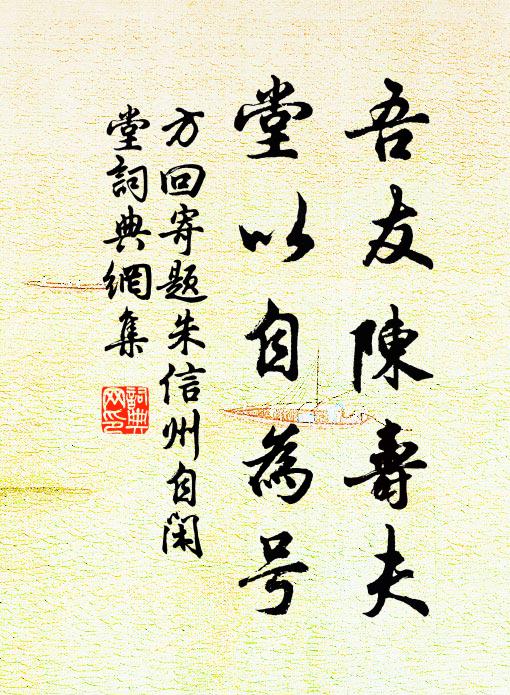 吾友陳壽夫
堂以自為号
方回寄題朱信州自閑
堂詞典網集
詞典
网印